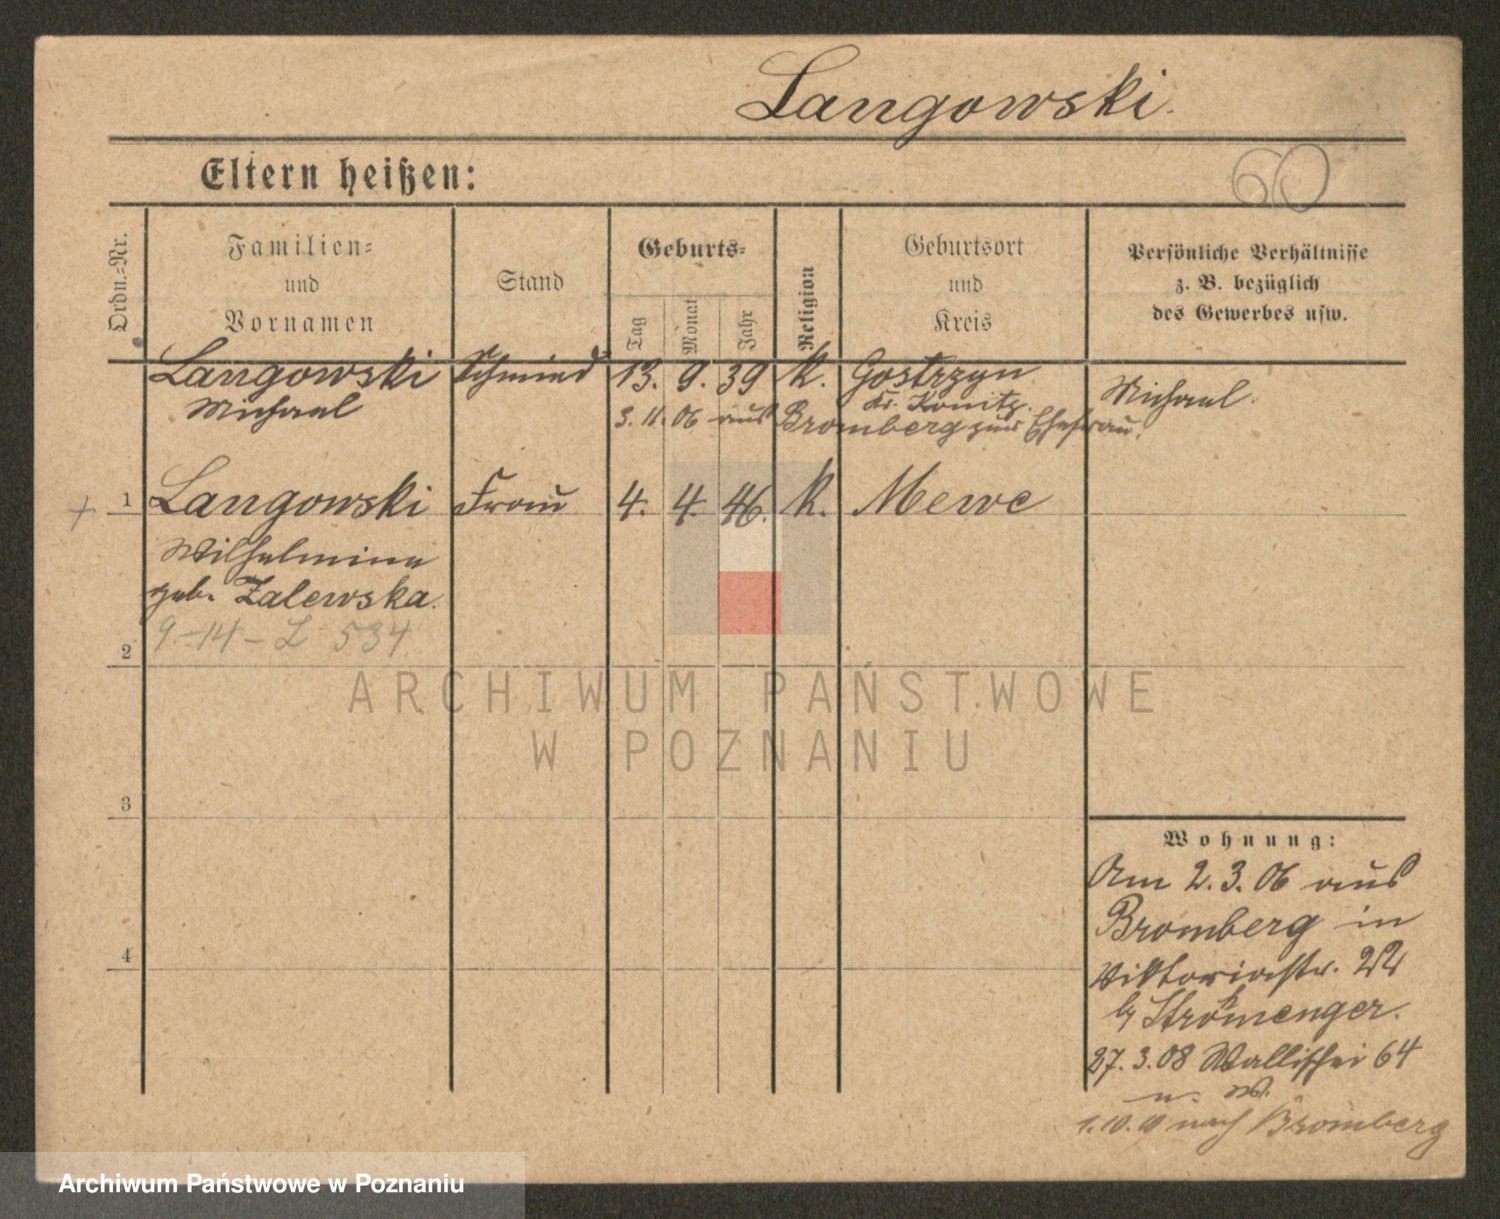 Langowski.
Eltern heißen:
60
Ordn.=Nr.
Familien=
und
Vornamen
Stand
Geburts=
Tag
Monat
Jahr
Religion
Geburtsort
und
Kreis
Persönliche Verhältnisse
z. B. bezüglich
des Gewerbes usw.
Langowski Schmied 13. 9. 39 k. Gostrzyn
Michael Kr. Konitz. Michael.
3. 11. 06 aus Bromberg zur Ehefrau.
+ 1 Langowski Frau 4. 4. 46. k. Mewe
Wilhelmine
geb. Zalewska.
9-14- L 534
2
3
4
Wohnung:
Am 2. 3. 06 aus
Bromberg in
Viktoriastr. 22
b/ Strömenger.
27. 3. 08 Wallischei 64
u. W.
1. 10. 10 nach Bromberg
ARCHIWUM PAŃSTWOWE
W POZNANIU
Archiwum Państwowe w Poznaniu